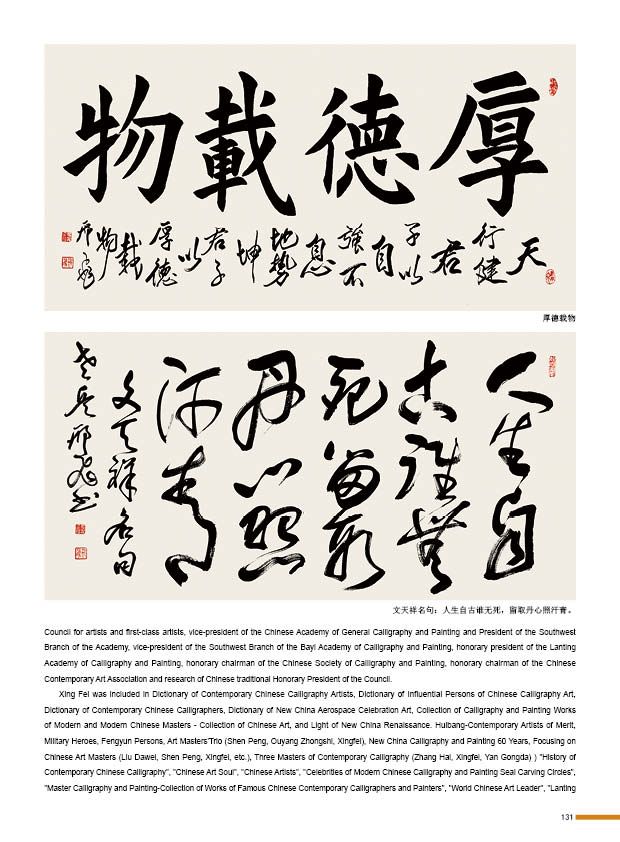 厚德載物
天
行健
君
子以
自
強不
息
地勢
坤
君子
以
厚德
載
物
厚德载物
人生自
古誰無
死留取
丹心照
汗青
文天祥名句
老兵邢飛书
文天祥名句：人生自古谁无死，留取丹心照汗青。
Council for artists and first-class artists, vice-president of the Chinese Academy of General Calligraphy and Painting and President of the Southwest
Branch of the Academy, vice-president of the Southwest Branch of the Bayi Academy of Calligraphy and Painting, honorary president of the Lanting
Academy of Calligraphy and Painting, honorary chairman of the Chinese Society of Calligraphy and Painting, honorary chairman of the Chinese
Contemporary Art Association and research of Chinese traditional Honorary President of the Council.
Xing Fei was included in Dictionary of Contemporary Chinese Calligraphy Artists, Dictionary of Influential Persons of Chinese Calligraphy Art,
Dictionary of Contemporary Chinese Calligraphers, Dictionary of New China Aerospace Celebration Art, Collection of Calligraphy and Painting Works
of Modern and Modern Chinese Masters - Collection of Chinese Art, and Light of New China Renaissance. Huibang-Contemporary Artists of Merit,
Military Heroes, Fengyun Persons, Art Masters'Trio (Shen Peng, Ouyang Zhongshi, Xingfei), New China Calligraphy and Painting 60 Years, Focusing on
Chinese Art Masters (Liu Dawei, Shen Peng, Xingfei, etc.), Three Masters of Contemporary Calligraphy (Zhang Hai, Xingfei, Yan Gongda) ) "History of
Contemporary Chinese Calligraphy", "Chinese Art Soul", "Chinese Artists", "Celebrities of Modern Chinese Calligraphy and Painting Seal Carving Circles",
"Master Calligraphy and Painting-Collection of Works of Famous Contemporary Calligraphers and Painters", "World Chinese Art Leader", "Lanting
131